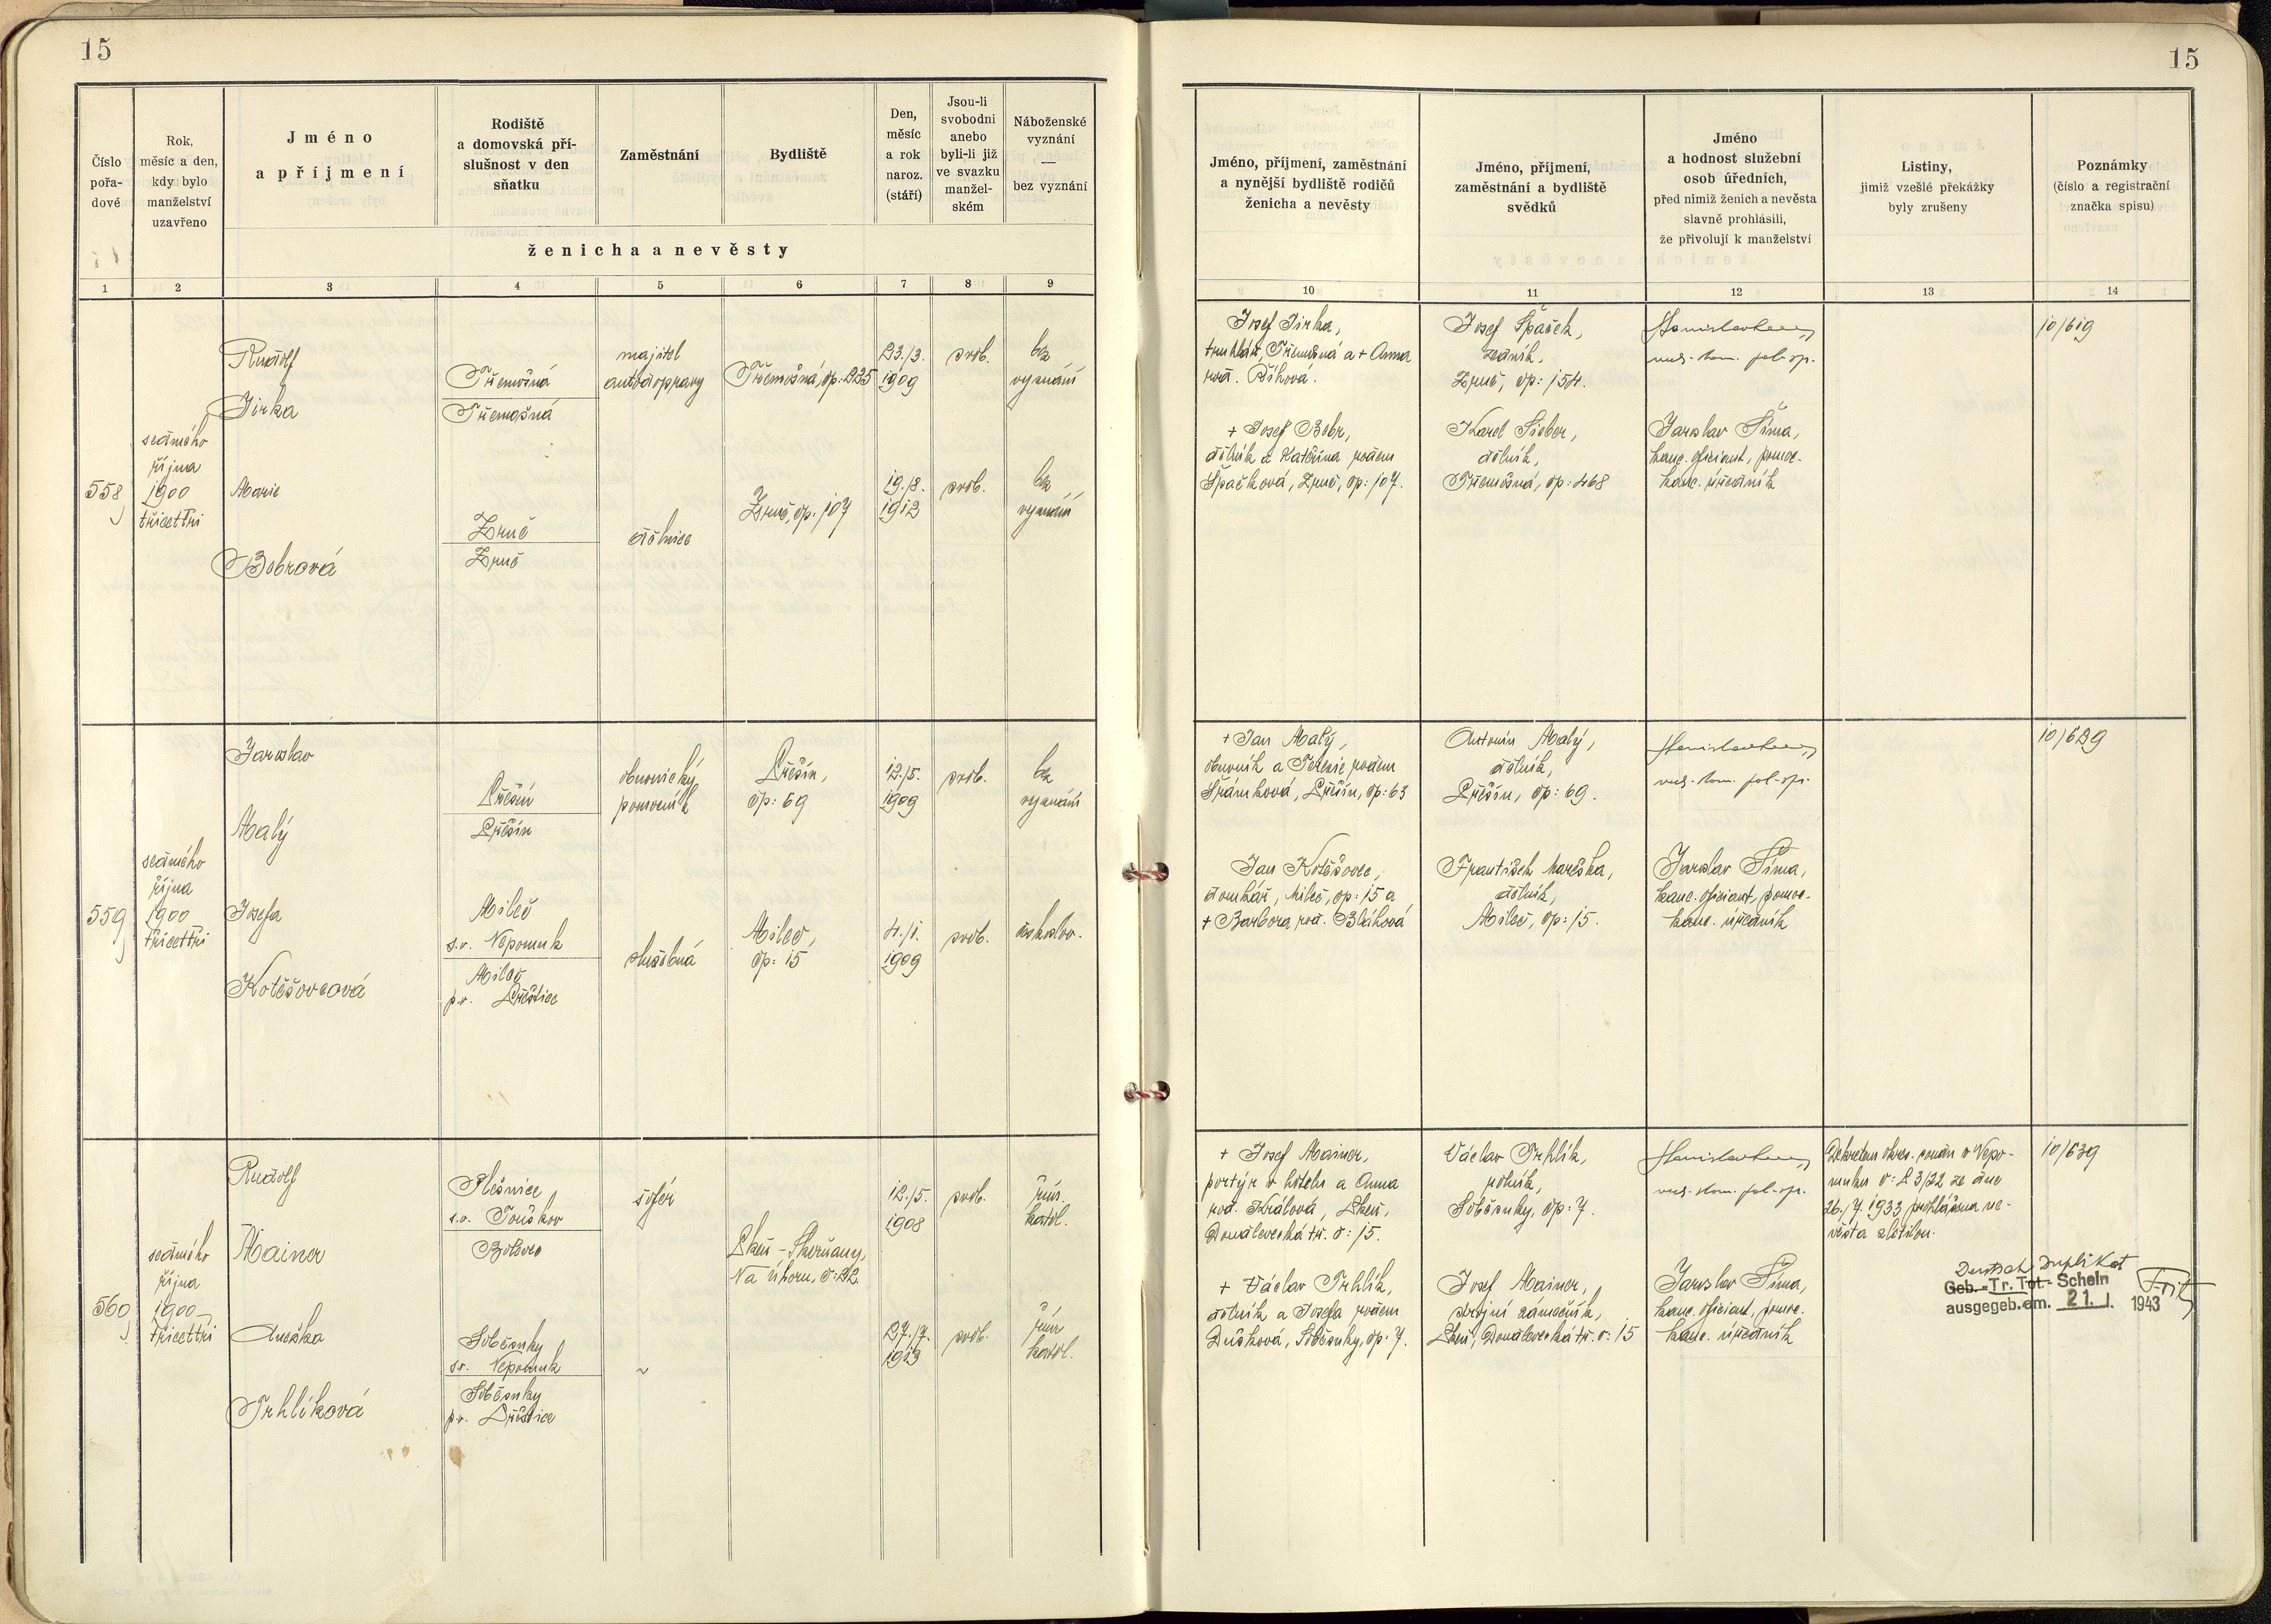 15
15
Číslo
pořa-
dové
Rok,
měsíc a den,
kdy bylo
manželství
uzavřeno
Jméno
a příjmení
Rodiště
a domovská pří-
slušnost v den
sňatku
Zaměstnání
Bydliště
Den,
měsíc
a rok
naroz.
(stáří)
Jsou-li
svobodni
anebo
byli-li již
ve svazku
manžel-
ském
Náboženské
vyznání
—
bez vyznání
ženicha a nevěsty
1 2 3 4 5 6 7 8 9
Jméno, příjmení, zaměstnání
a nynější bydliště rodičů
ženicha a nevěsty
Jméno, příjmení,
zaměstnání a bydliště
svědků
Jméno
a hodnost služební
osob úředních,
před nimiž ženich a nevěsta
slavně prohlásili,
že přivolují k manželství
Listiny,
jimiž vzešlé překážky
byly zrušeny
Poznámky
(číslo a registrační
značka spisu)
10 11 12 13 14
558
sedmého
října
1900
třicettři
Rudolf
Jirka
Třemošná
Třemošná
majitel
autodopravy
Třemošná, čp: 225
23./3.
1909
svob.
bez
vyznání
Marie
Bobrová
Zruč
Zruč
dělnice
Zruč, čp: 107
19./8.
1912
svob.
bez
vyznání
Josef Jirka,
truhlář, Třemošná a + Anna
rod. Říhová.
+ Josef Bobr,
dělník a Kateřina rodem
Špačková, Zruč, čp: 107.
Josef Špaček,
zedník,
Zruč, čp: 154.
Karel Sieber,
dělník,
Třemošná, čp: 468
Jaroslav Šíma,
kanc. oficiant, pomoc.
kanc. úředník
10/619
559
sedmého
října
1900
třicettři
Jaroslav
Malý
Příšín
Příšín
obuvnický
pomocník
Příšín,
čp: 69
12./5.
1909
svob.
bez
vyznání
Josefa
Kotěšovcová
Mileč
s.o. Nepomuk
Mileč
p.o. Přeštice
služebná
Mileč,
čp: 15
4./1.
1909
svob.
českoslov.
+ Jan Malý,
obuvník a Terezie rodem
Šrámková, Příšín, čp: 63
Jan Kotěšovec,
domkář, Mileč, čp: 15 a
+ Barbora rod. Bláhová
Antonín Malý,
dělník,
Příšín, čp: 69.
František Mareška,
dělník,
Mileč, čp: 15.
Jaroslav Šíma,
kanc. oficiant, pomoc.
kanc. úředník
10/629
560
sedmého
října
1900
třicettři
Rudolf
Mainer
Plešnice
s.o. Touškov
Bolevec
šofér
Plzeň - Skvrňany,
Na úhoru, č: 22
12./5.
1908
svob.
řím.
katol.
Anežka
Trhlíková
Soběsuky
s.o. Nepomuk
Soběsuky
p.o. Přeštice
~
27./7.
1913
svob.
řím.
katol.
+ Josef Mainer,
portýr v hotelu a Anna
rod. Králová, Plzeň,
Doudlevecká tř. č: 15.
+ Václav Trhlík,
dělník a Josefa rodem
Dušková, Soběsuky, čp: 7.
Václav Trhlík,
rolník,
Soběsuky, čp: 7.
Josef Mainer,
strojní zámečník,
Plzeň, Doudlevecká tř. č: 15
Jaroslav Šíma,
kanc. oficiant, pomoc.
kanc. úředník
Dekretem okres. soudu v Nepo-
muku č: P 3/22 ze dne
26./7. 1933 prohlášena ne-
věsta zletilou.
10/639
Deutsch Duplikat
Geb.-Tr.-Tot-Schein
ausgegeb. am. 21. I. 1943